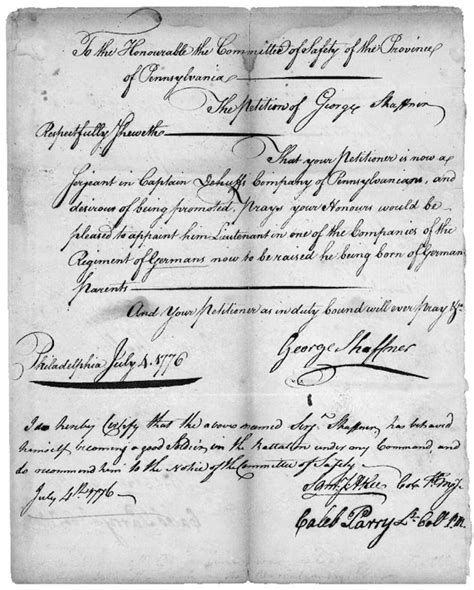 To the Honourable the Committee of Safety of the Province
of Pennsylvania
The Petition of George Shaffner
Respectfully Sheweth
That your Petitioner is now a
Serjeant in Captain Dehuffs Company of Pennsylvaneans, and
desirous of being promoted, Prays your Honours would be
pleased to appoint him Lieutenant in one of the Companies of the
Regiment of Germans now to be raised he being born of German
Parents
And Your Petitioner as in duty bound will ever Pray &c
Philadelphia July 4. 1776
George Shaffner
I do hereby Certify that the above named Serjt. Shaffner, has behaved
himself becoming a good Soldier, in the Battalion under my Command, and
do recommend him to the Notice of the Committee of Safety
July 4th 1776
Caleb Parry Lt. Colo